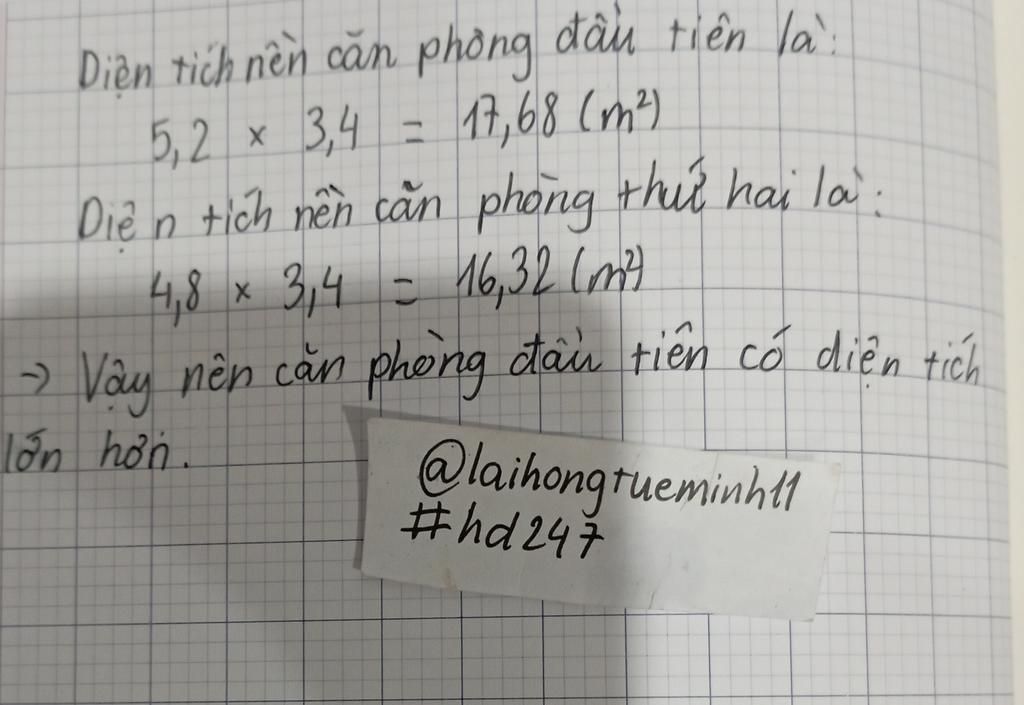 Diện tích nền căn phòng đầu tiên là:
5,2 × 3,4 = 17,68 (m²)
Diện tích nền căn phòng thứ hai là:
4,8 × 3,4 = 16,32 (m²)
→ Vậy nền căn phòng đầu tiên có diện tích
lớn hơn.
@laihongtueminh11
#hd247